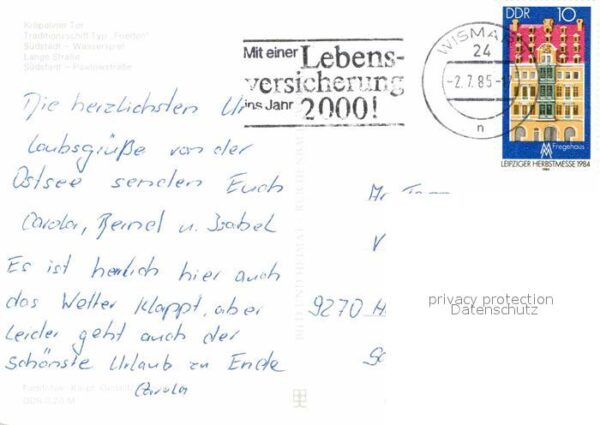 Kröpeliner Tor
Traditionsschiff Typ „Frieden“
Südstadt – Wasserspiel
Lange Straße
Südstadt – Pawlowstraße
Mit einer Lebens-
versicherung
ins Jahr 2000!
WISMAR
24
-2.7.85-
n
DDR 10
Fregehaus
LEIPZIGER HERBSTMESSE 1984
Die herzlichsten Ur
laubsgrüße von der
Ostsee senden Euch
Carola, Bernd u. Isabel
Es ist herrlich hier auch
das Wetter klappt, aber
leider geht auch der
schönste Urlaub zu Ende
Carola
9270
BILD UND HEIMAT
privacy protection
Datenschutz